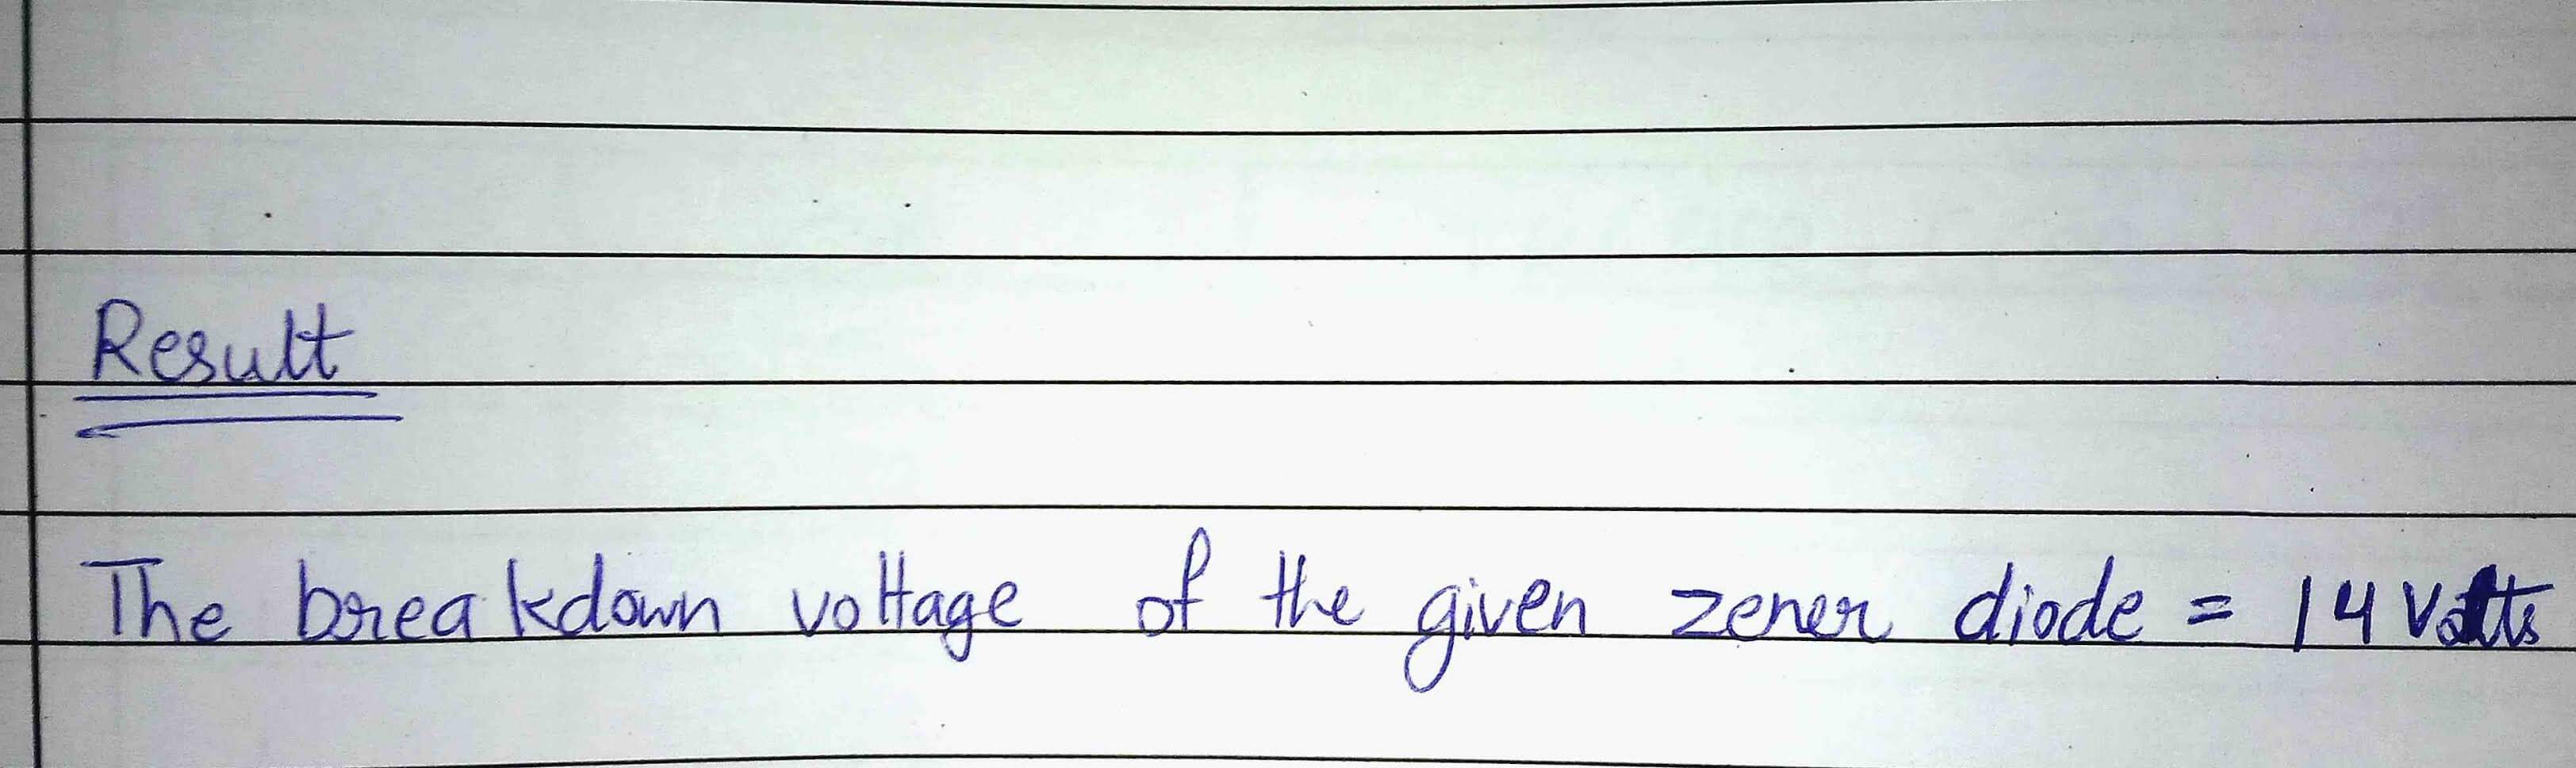 Result
The breakdown voltage of the given zener diode = 14 Volts